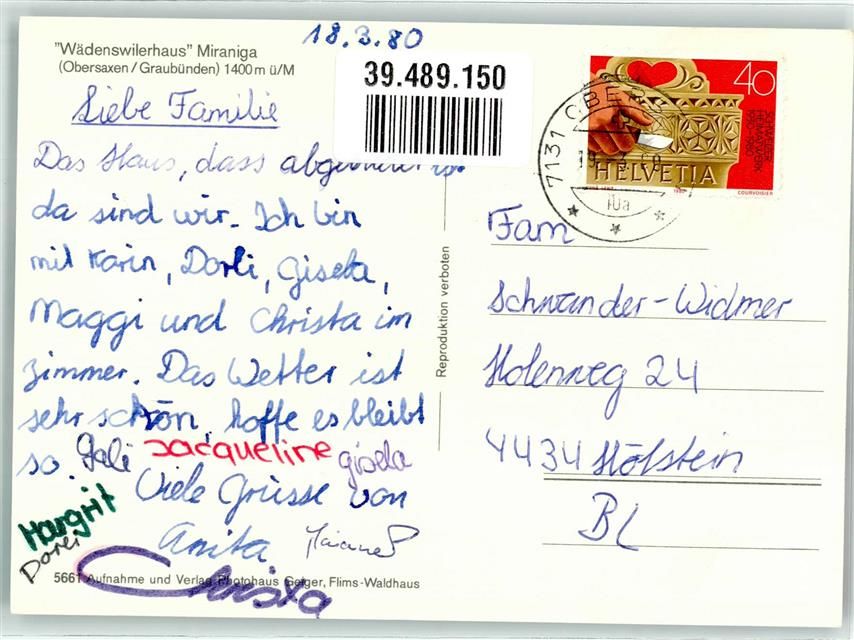 18.3.80
"Wädenswilerhaus" Miraniga
(Obersaxen/Graubünden) 1400 m ü/M
39.489.150
Liebe Familie
Das Haus, dass
da sind wir. Ich bin
mit Karin, Dorli, Gisela,
Maggi und Christa im
zimmer. Das Wetter ist
sehr schön, hoffe es bleibt
so.
Jacqueline gisela
Viele Grüsse von
Margrit
Anita
Dorli
Christa
5661 Aufnahme und Verlag Photohaus Geiger, Flims-Waldhaus
Reproduktion verboten
40
SCHWEIZER
HEIMATWERK
1930-1980
HELVETIA
COURVOISIER
7131 OBER
19.-3.80
Fam
Schwander-Widmer
Holenweg 24
4434 Hölstein
BL